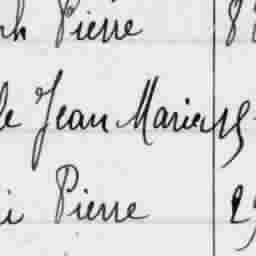 ph Pierre 8
le Jean Marie
i Pierre 29